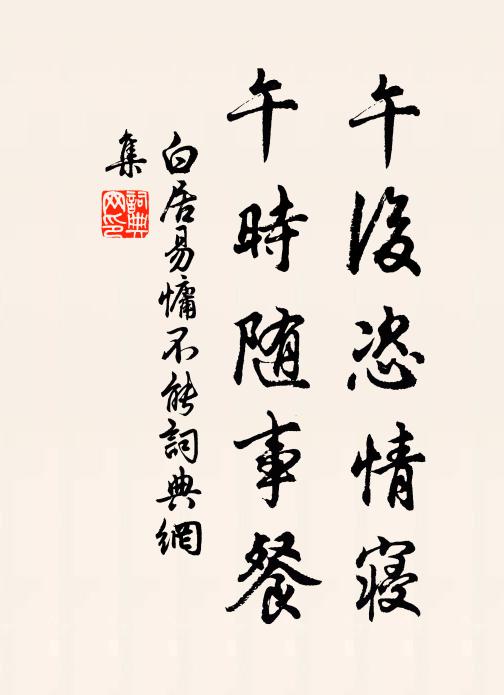 午後恣情寝
午時随事餐
白居易慵不能詞典網
集
詞典
网印